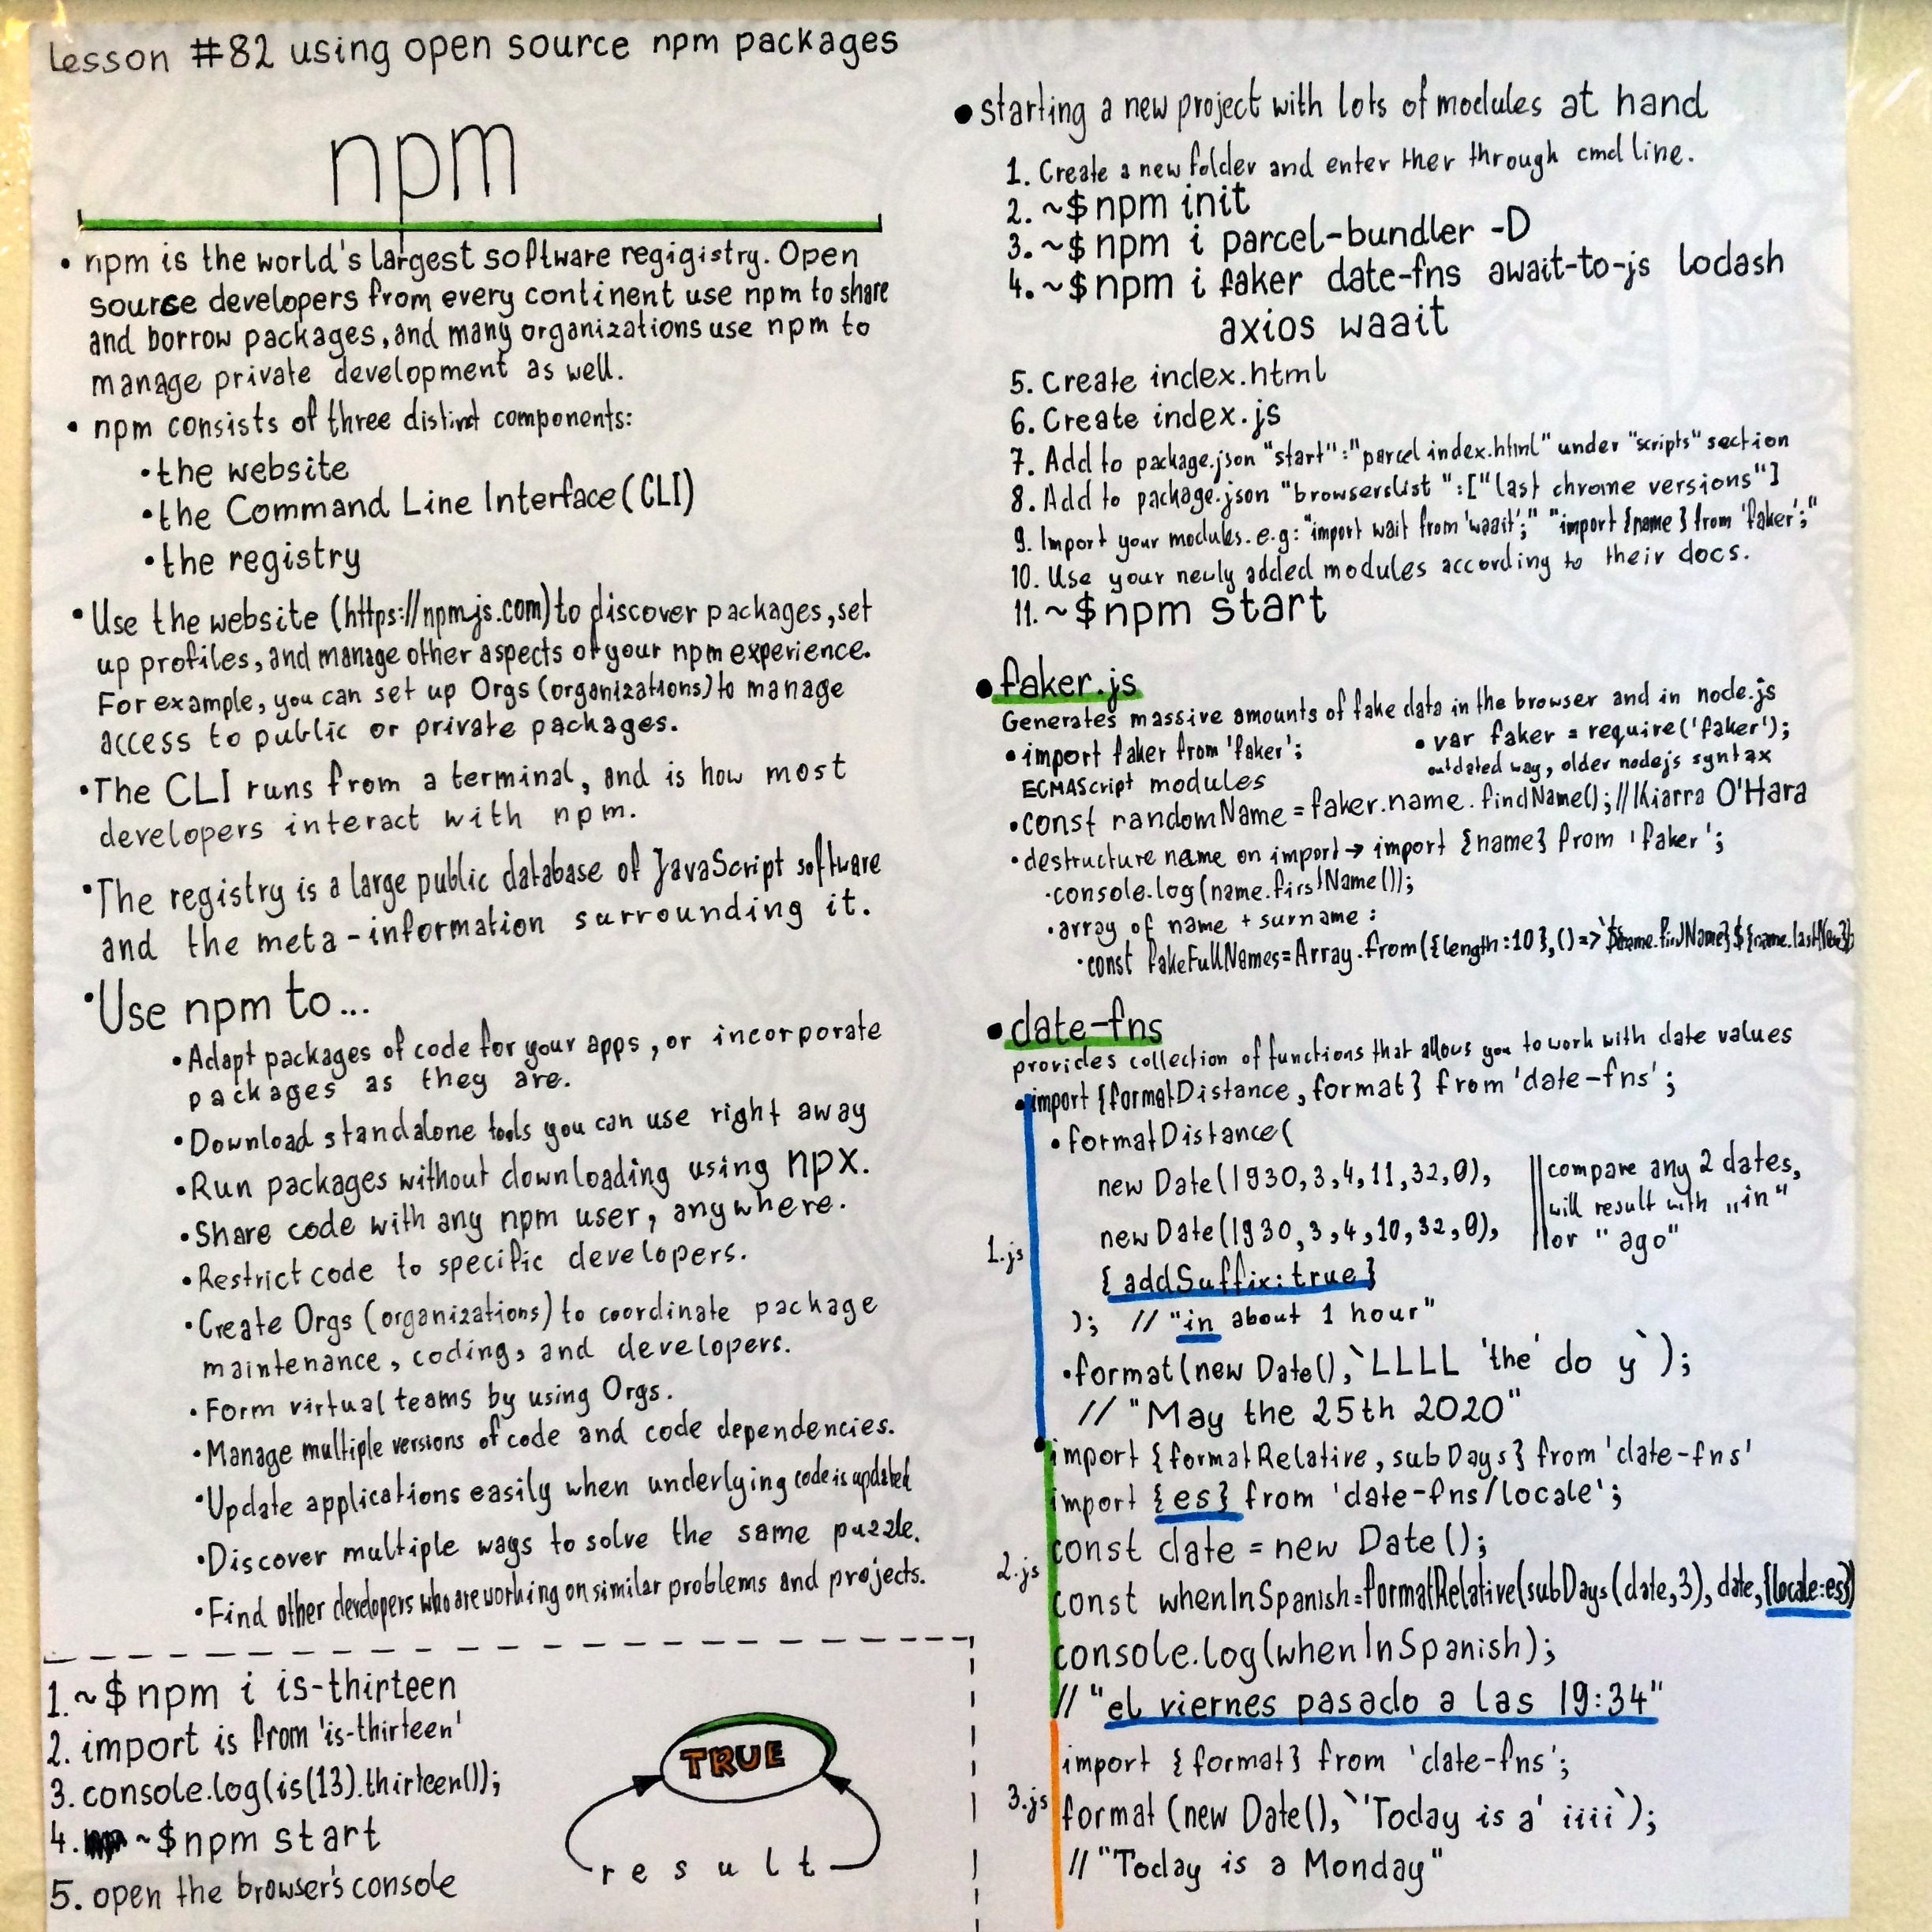 Lesson #82 using open source npm packages
npm
• npm is the world's largest software regigistry. Open
source developers from every continent use npm to share
and borrow packages, and many organizations use npm to
manage private development as well.
• npm consists of three distinct components:
• the website
• the Command Line Interface (CLI)
• the registry
• Use the website (https://npmjs.com) to discover packages, set
up profiles, and manage other aspects of your npm experience.
For example, you can set up Orgs (organizations) to manage
access to public or private packages.
• The CLI runs from a terminal, and is how most
developers interact with npm.
• The registry is a large public database of JavaScript software
and the meta-information surrounding it.
• Use npm to...
• Adapt packages of code for your apps, or incorporate
packages as they are.
• Download standalone tools you can use right away
• Run packages without downloading using npx.
• Share code with any npm user, anywhere.
• Restrict code to specific developers.
• Create Orgs (organizations) to coordinate package
maintenance, coding, and developers.
• Form virtual teams by using Orgs.
• Manage multiple versions of code and code dependencies.
• Update applications easily when underlying code is updated
• Discover multiple ways to solve the same puzzle.
• Find other developers who are working on similar problems and projects.
1. ~$ npm i is-thirteen
2. import is from 'is-thirteen'
3. console.log(is(13).thirteen());
4. ~$ npm start
5. open the browser's console
TRUE
result
• starting a new project with lots of modules at hand
1. Create a new folder and enter ther through cmd line.
2. ~$ npm init
3. ~$ npm i parcel-bundler -D
4. ~$ npm i faker date-fns await-to-js lodash
axios waait
5. Create index.html
6. Create index.js
7. Add to package.json "start":"parcel index.html" under "scripts" section
8. Add to package.json "browserslist ":["last chrome versions"]
9. Import your modules. e.g: "import wait from 'waait';" "import {name} from 'faker';"
10. Use your newly added modules according to their docs.
11. ~$ npm start
• faker.js
Generates massive amounts of fake data in the browser and in node.js
• import faker from 'faker';
ECMAScript modules
• var faker = require('faker');
outdated way, older nodejs syntax
• const randomName = faker.name.findName(); // Kiarra O'Hara
• destructure name on import → import {name} from 'faker';
• console.log(name.firstName());
• array of name + surname:
• const fakeFullNames=Array.from({length:10},()=>`${name.firstName}${name.lastName}
• date-fns
provides collection of functions that allows you to work with date values
• import {formatDistance, format} from 'date-fns';
• formatDistance(
new Date(1930,3,4,11,32,0),
new Date(1930,3,4,10,32,0),
{addSuffix:true}
); // "in about 1 hour"
|| compare any 2 dates,
will result with „in"
or " ago"
1.js
• format(new Date(),`LLLL 'the' do y`);
// "May the 25th 2020"
import {formatRelative, subDays} from 'date-fns'
import {es} from 'date-fns/locale';
const date = new Date();
2.js
const whenInSpanish=formatRelative(subDays(date,3),date,{locale:es})
console.log(whenInSpanish);
// "el viernes pasado a las 19:34"
import {format} from 'date-fns';
3.js
format (new Date(),`'Today is a' iiii`);
// "Today is a Monday"